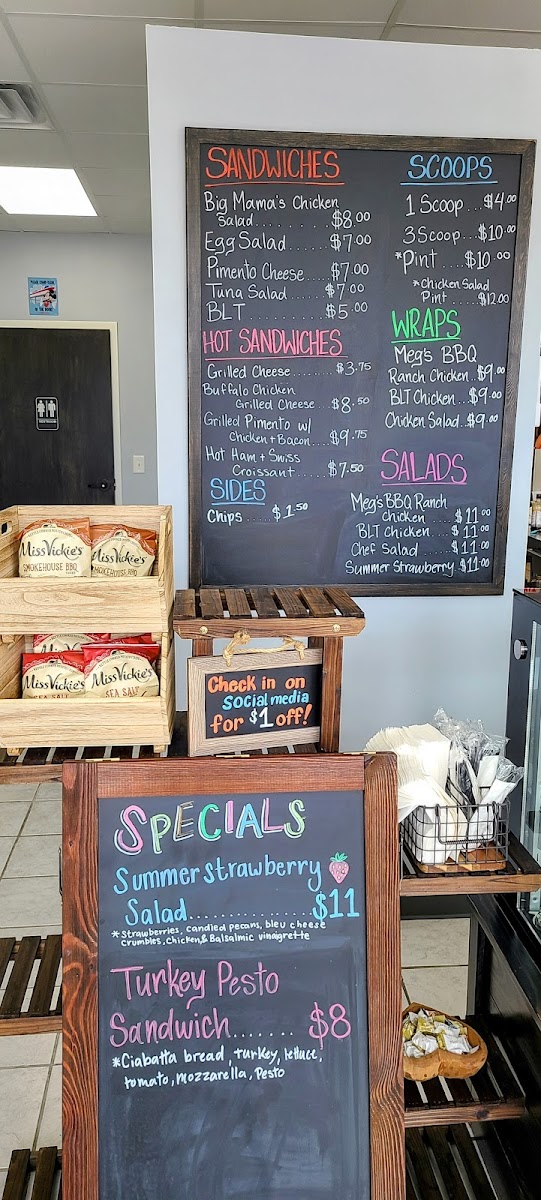 SANDWICHES
Big Mama's Chicken
Salad........$8.00
Egg Salad......$7.00
Pimento Cheese....$7.00
Tuna Salad....$7.00
BLT............$5.00
HOT SANDWICHES
Grilled Cheese........$3.75
Buffalo Chicken
Grilled Cheese...$8.50
Grilled Pimento w/
Chicken + Bacon....$9.75
Hot Ham + Swiss
Croissant....$7.50
SIDES
Chips....$1.50
SCOOPS
1 Scoop...$4.00
3 Scoop...$10.00
*Pint....$10.00
*Chicken Salad
Pint....$12.00
WRAPS
Meg's BBQ
Ranch Chicken..$9.00
BLT Chicken...$9.00
Chicken Salad..$9.00
SALADS
Meg's BBQ Ranch
Chicken.....$11.00
BLT Chicken...$11.00
Chef Salad....$11.00
Summer Strawberry.$11.00
Miss Vickie's
SMOKEHOUSE BBQ
Miss Vickie's
SMOKEHOUSE BBQ
Miss Vickie's
SEA SALT
Miss Vickie's
SEA SALT
Check in on
social media
for $1 off!
SPECIALS
Summer Strawberry
Salad..............$11
*Strawberries, candied pecans, bleu cheese
crumbles, chicken, & Balsalmic vinaigrette
Turkey Pesto
Sandwich.......$8
*Ciabatta bread, turkey, lettuce,
tomato, mozzarella, Pesto